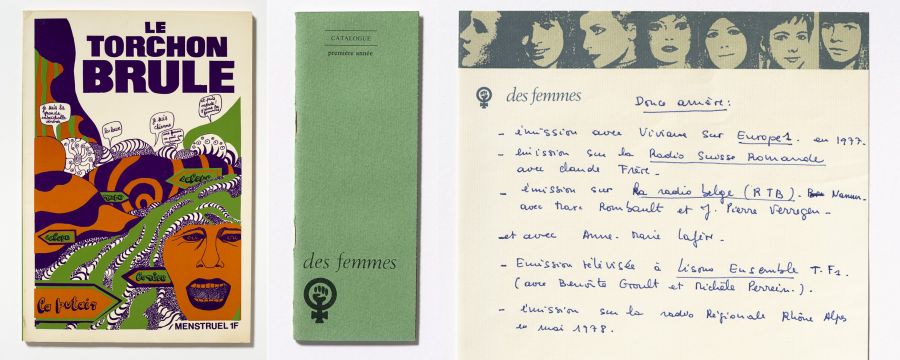 LE
TORCHON
BRULE
je suis la
le bien
je suis
salope
salope
la putain
/MENSTRUEL 1F
CATALOGUE
première année
des femmes
des femmes
Douce amère :
- émission avec Viviane sur Europe 1. en 1977.
- émission sur la Radio Suisse Romande
avec Claude Frère -
- émission sur la radio belge (RTB). Namur -
avec Marc Rombault et J. Pierre Verregen -
- et avec Anne-Marie Lafère -
- Emission télévisée à Lisons Ensemble T.F1.
(avec Benoîte Groult et Michèle Perrein.).
- émission sur la radio Régionale Rhône Alpes
en mai 1978.